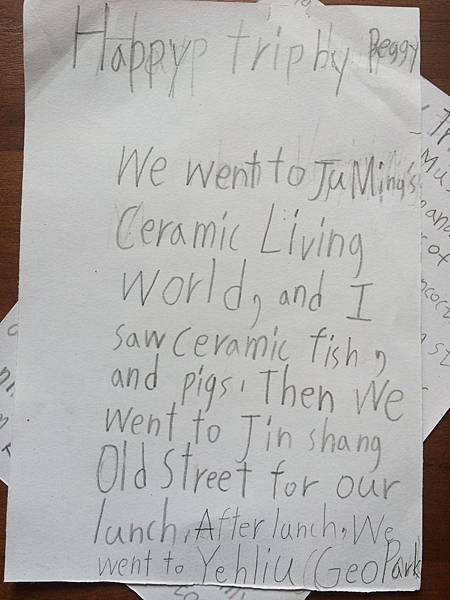 Happy trip by Peggy
We went to Ju Ming's
Ceramic Living
World, and I
saw ceramic fish,
and pigs. Then We
went to Jin shang
Old Street for our
lunch. After lunch, We
went to Yehliu (GeoPark